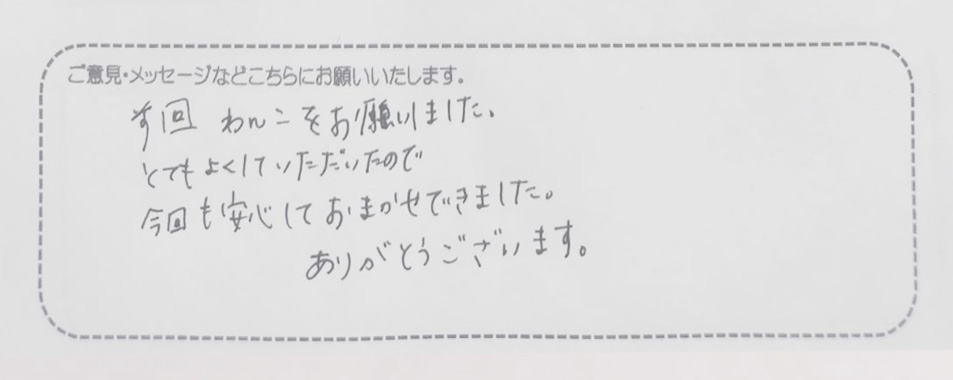 ご意見・メッセージなどこちらにお願いいたします。
回 わんこをお願いしました。
とてもよくしていただいたので
今回も安心しておまかせできました。
ありがとうございます。